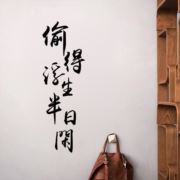 偷得
浮生
半日閒